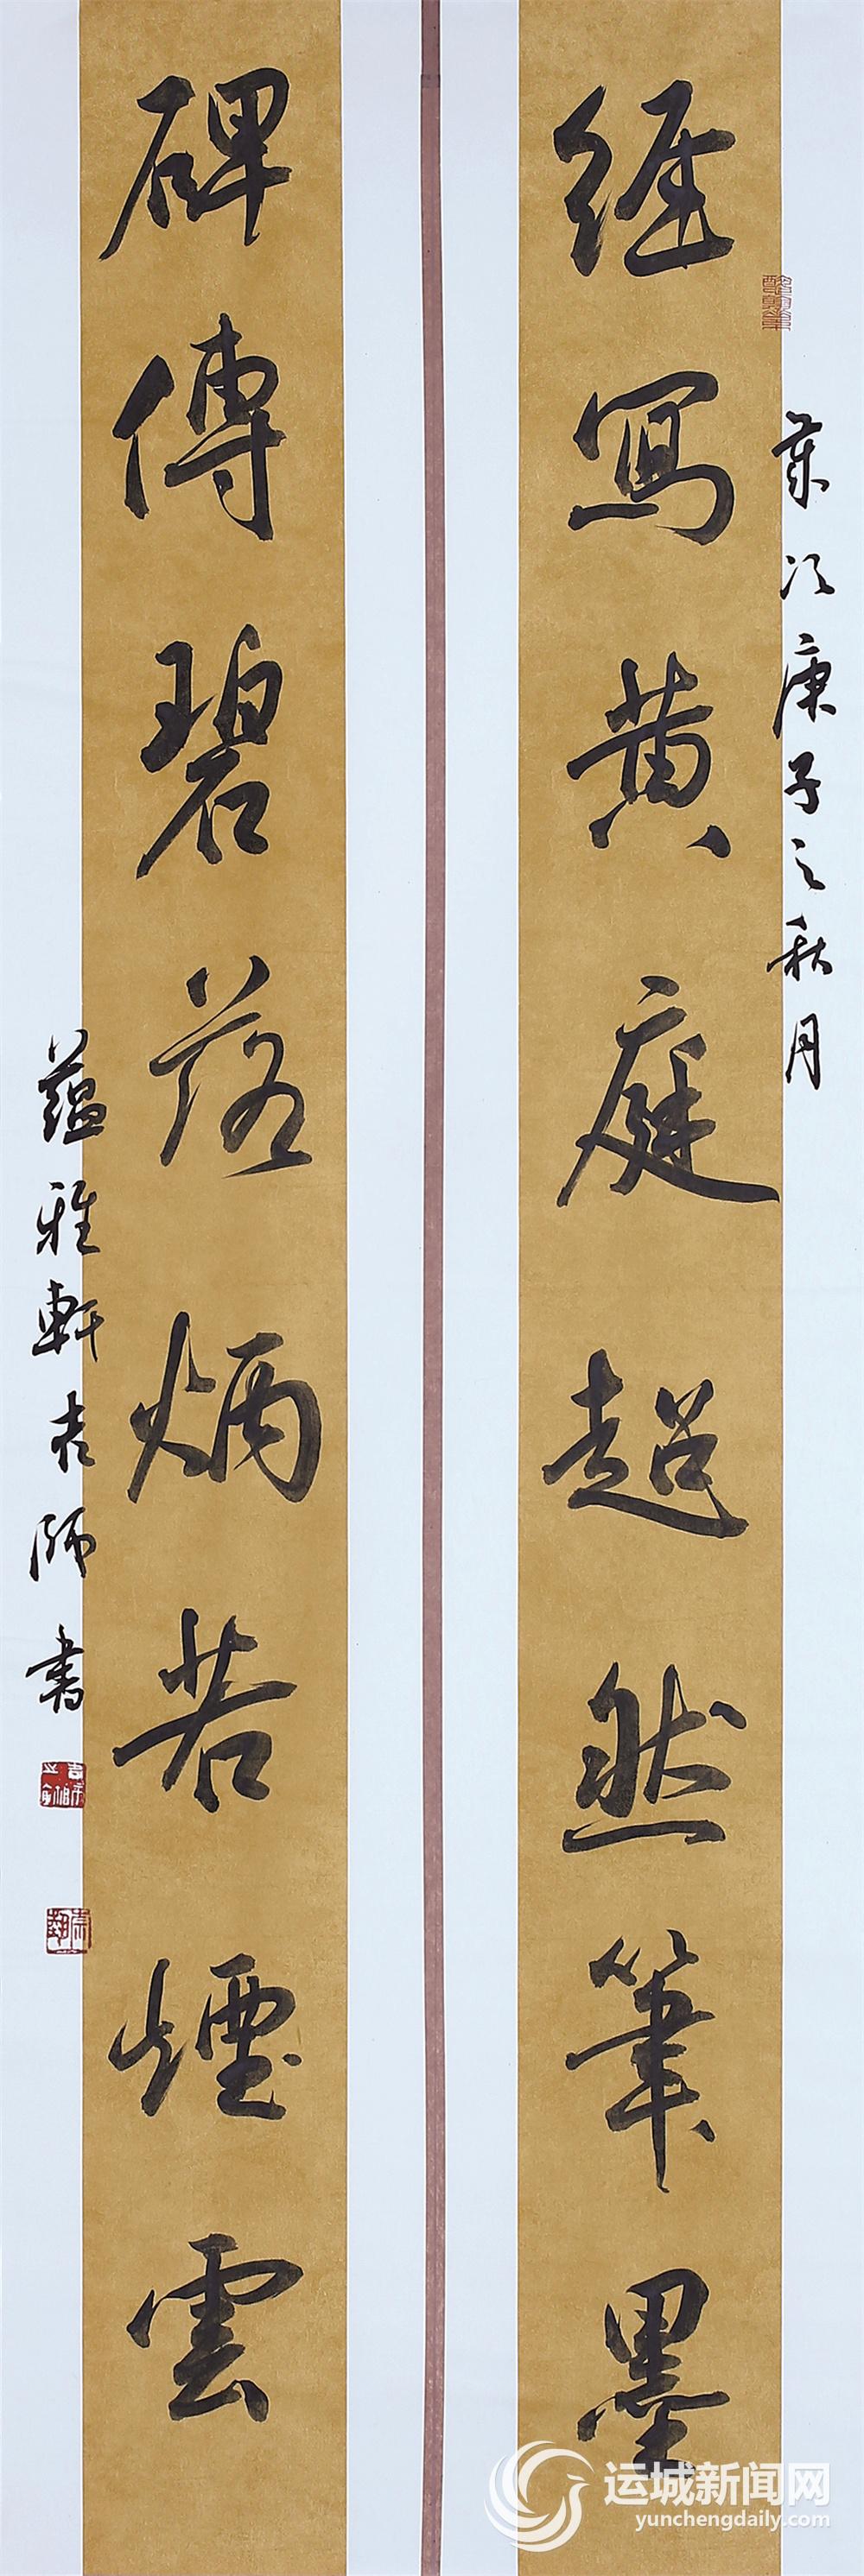 經寫黄庭超然筆墨
歲次庚子之秋月
碑傳碧落炳若煙雲
蕴雅軒吉師書
运城新闻网
yunchengdaily.com